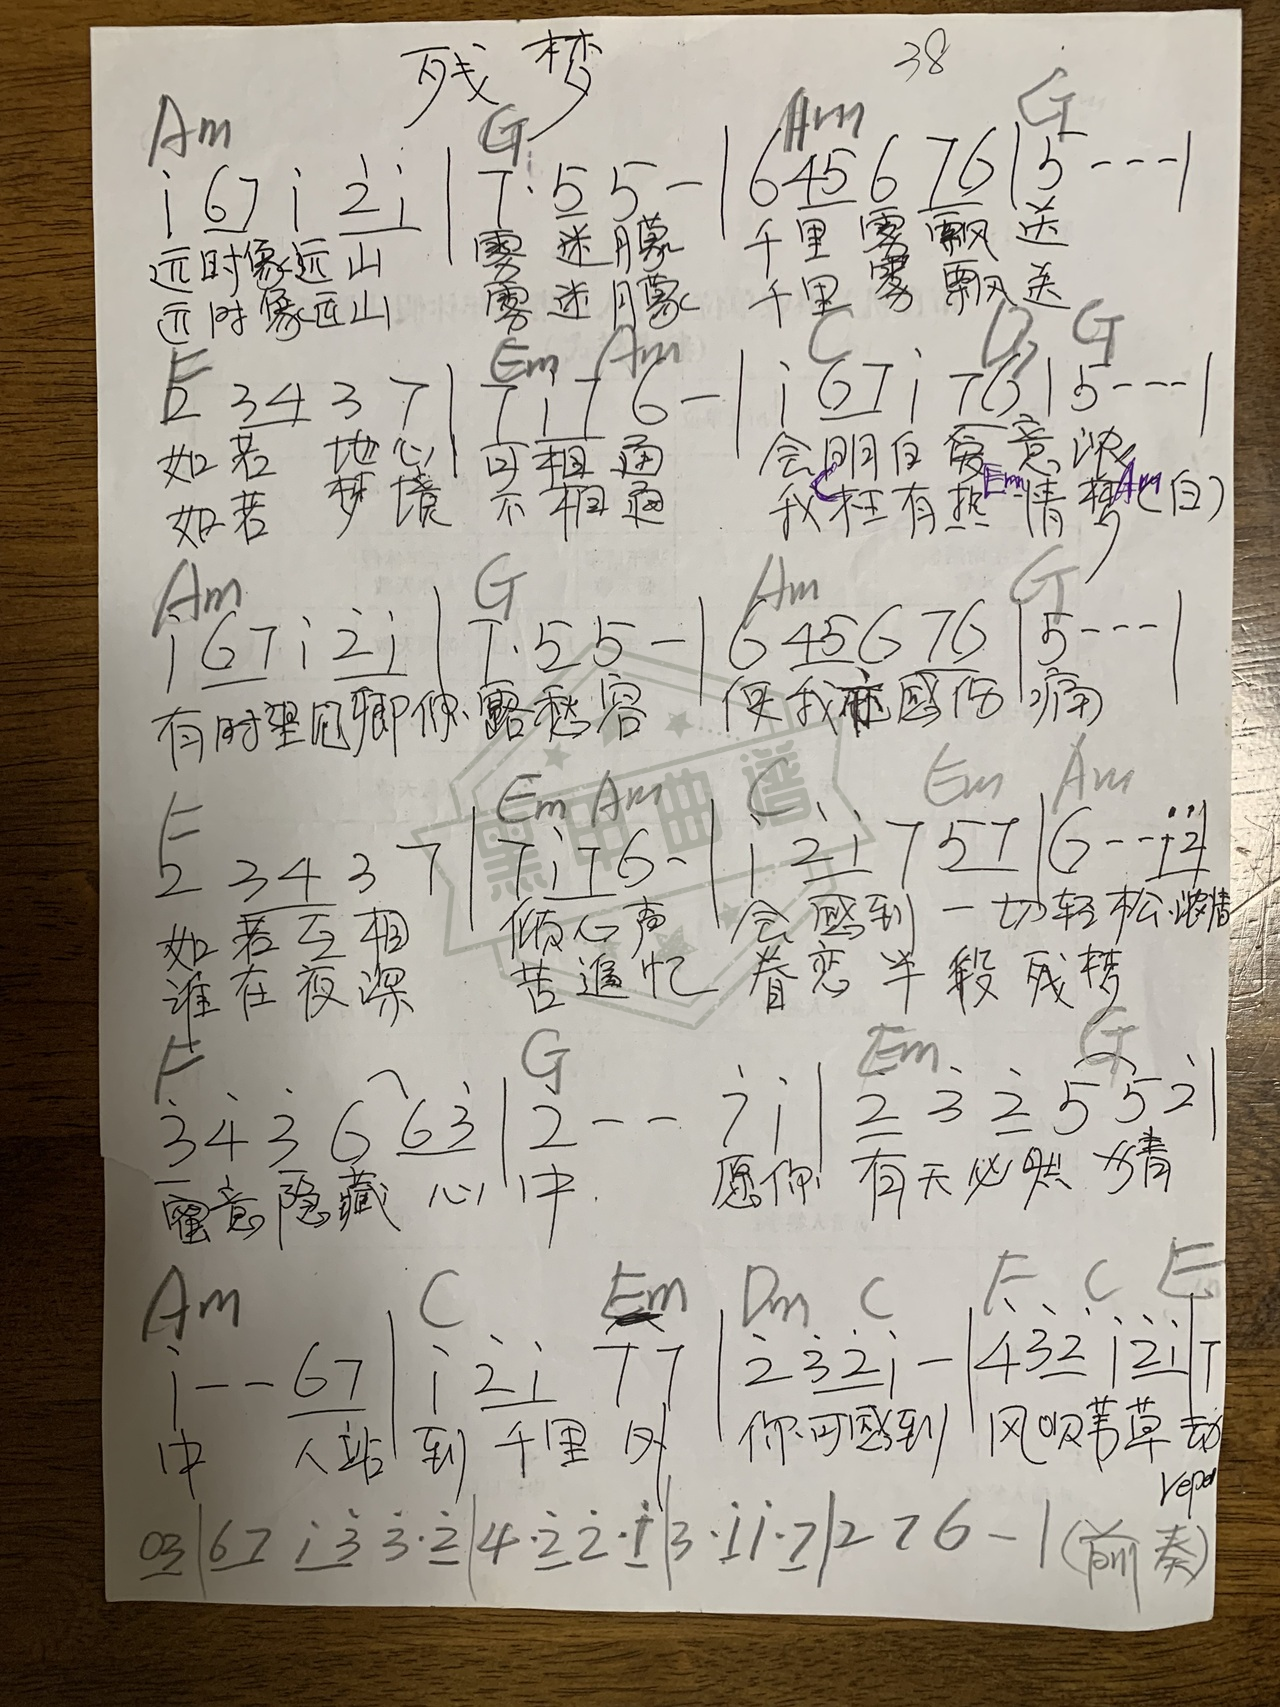 残梦 38
Am G Am G
i 67 i 2i | 7·5 5 - | 6 45 6 76 | 5 - - - |
远时像远山 雾迷朦 千里雾飘送
远时像远山 雾迷朦 千里雾飘送
F Em Am C D G
2 34 3 7 | 7i7 6 - | i 67 i 76 | 5 - - - |
如若地心 可相通 会明白爱意浓
C Em Am
如若梦境 不相通 我枉有热情梦(白)
Am G Am G
i 67 i 2i | 7·5 5 - | 6 45 6 76 | 5 - - - |
有时望见卿你露愁容 使我亦感伤痛
F Em Am C Em Am
2 34 3 7 | 7i7 6 - | i 2i 7 57 | 6 - - i2 |
如若互相 倾心声 会感到一切轻松 浓情
谁在夜深 苦追忆 眷恋半段残梦
F G Em G
3 4 3 6 63 | 2 - - 7 i | 2 3 2 5 5 2 |
蜜意隐藏心中 愿你 有天必然 情
Am C Em Dm C F C E
i - - 67 | i 2i 7 7 | 2 32 i - | 4 32 i 2i | 7
中 人站到千里外 你可感到 风吹苇草动
03 | 67 i3 3·2 | 4·2 2·i | 3·i i·7 | 2 7 6 - | (前奏)